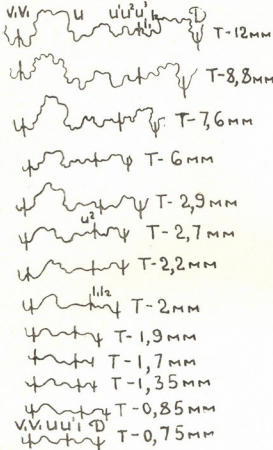 V₁V₁ u u¹u²u³ l₁ D
l₂l₁ T-12мм
T-8,8мм
T-7,6мм
T-6мм
T-2,9мм
u² T-2,7мм
T-2,2мм
l₁l₂ T-2мм
T-1,9мм
T-1,7мм
T-1,35мм
T-0,85мм
V₁V₁ u u¹ i D T-0,75мм